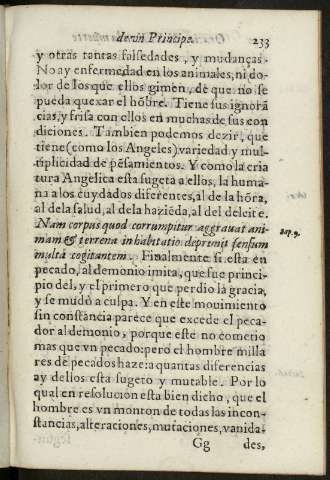 de vn Principe. 233
y otras tantas falsedades, y mudanças.
No ay enfermedad en los animales, ni do-
lor de los que ellos gimen, de que no se
pueda quexar el hõbre. Tiene sus ignorã
cias, y frisa con ellos en muchas de sus con
diciones. Tambien podemos dezir, que
tiene (como los Angeles) variedad y mul-
tiplicidad de pẽsamientos. Y como la cria
tura Angelica esta sugeta a ellos, la huma-
na a los cuydados diferentes, al de la hõra,
al de la salud, al de la haziẽda, al del deleite.
Nam corpus quod corrumpitur aggrauat ani-
mam & terrena inhabitatio deprimit sensum
multa cogitantem. Finalmente si esta en
pecado, al demonio imita, que fue princi-
pio del, y el primero que perdio la gracia,
y se mudò a culpa. Y en este mouimiento
sin constãcia parece que excede el peca-
dor al demonio, porque este no cometio
mas que vn pecado: pero el hombre milla
res de pecados haze: a quantas diferencias
ay dellos esta sugeto y mutable. Por lo
qual en resolucion esta bien dicho, que el
hombre es vn monton de todas las incon-
stancias, alteraciones, mutaciones, vanida-
Gg des,
sap. 9.